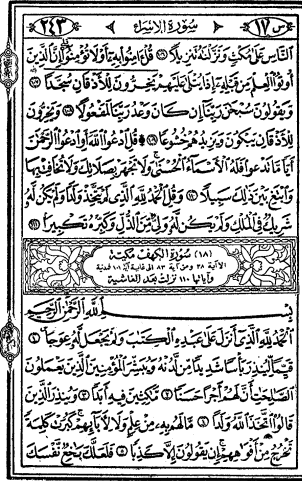 س ١٧ سورة الاسراء ٢٤٣
النَّاسِ عَلَىٰ مُكْثٍ وَنَزَّلْنَاهُ تَنْزِيلًا ۝ قُلْ آمِنُوا بِهِ أَوْ لَا تُؤْمِنُوا إِنَّ الَّذِينَ
أُوتُوا الْعِلْمَ مِنْ قَبْلِهِ إِذَا يُتْلَىٰ عَلَيْهِمْ يَخِرُّونَ لِلْأَذْقَانِ سُجَّدًا ۝
وَيَقُولُونَ سُبْحَانَ رَبِّنَا إِنْ كَانَ وَعْدُ رَبِّنَا لَمَفْعُولًا ۝ وَيَخِرُّونَ
لِلْأَذْقَانِ يَبْكُونَ وَيَزِيدُهُمْ خُشُوعًا ۝ قُلِ ادْعُوا اللَّهَ أَوِ ادْعُوا الرَّحْمَٰنَ
أَيًّا مَا تَدْعُوا فَلَهُ الْأَسْمَاءُ الْحُسْنَىٰ وَلَا تَجْهَرْ بِصَلَاتِكَ وَلَا تُخَافِتْ بِهَا
وَابْتَغِ بَيْنَ ذَٰلِكَ سَبِيلًا ۝ وَقُلِ الْحَمْدُ لِلَّهِ الَّذِي لَمْ يَتَّخِذْ وَلَدًا وَلَمْ يَكُنْ لَهُ
شَرِيكٌ فِي الْمُلْكِ وَلَمْ يَكُنْ لَهُ وَلِيٌّ مِنَ الذُّلِّ وَكَبِّرْهُ تَكْبِيرًا ۝
(١٨) سورة الكهف مكية
الا آية ٣٨ ومن آية ٨٣ الى غاية آية ١٠١ فمدنية
وآياتها ١١٠ نزلت بعد الغاشية
بِسْمِ اللَّهِ الرَّحْمَٰنِ الرَّحِيمِ
الْحَمْدُ لِلَّهِ الَّذِي أَنْزَلَ عَلَىٰ عَبْدِهِ الْكِتَابَ وَلَمْ يَجْعَلْ لَهُ عِوَجًا ۝
قَيِّمًا لِيُنْذِرَ بَأْسًا شَدِيدًا مِنْ لَدُنْهُ وَيُبَشِّرَ الْمُؤْمِنِينَ الَّذِينَ يَعْمَلُونَ
الصَّالِحَاتِ أَنَّ لَهُمْ أَجْرًا حَسَنًا ۝ مَاكِثِينَ فِيهِ أَبَدًا ۝ وَيُنْذِرَ الَّذِينَ
قَالُوا اتَّخَذَ اللَّهُ وَلَدًا ۝ مَا لَهُمْ بِهِ مِنْ عِلْمٍ وَلَا لِآبَائِهِمْ كَبُرَتْ كَلِمَةً
تَخْرُجُ مِنْ أَفْوَاهِهِمْ إِنْ يَقُولُونَ إِلَّا كَذِبًا ۝ فَلَعَلَّكَ بَاخِعٌ نَفْسَكَ